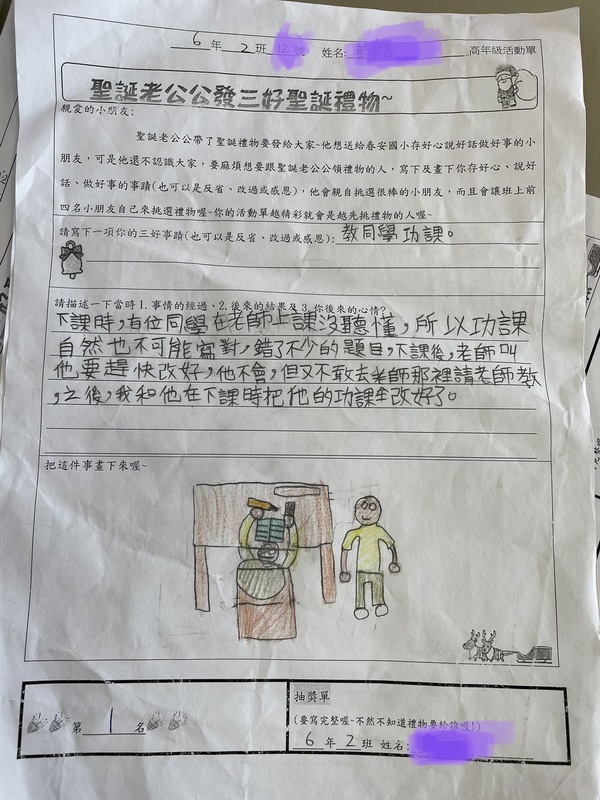 6 年 2 班 12 號 姓名: 高年級活動單
聖誕老公公發三好聖誕禮物~
親愛的小朋友:
聖誕老公公帶了聖誕禮物要發給大家~他想送給春安國小存好心說好話做好事的小
朋友，可是他還不認識大家，要麻煩想要跟聖誕老公公領禮物的人，寫下及畫下你存好心、說好
話、做好事的事蹟(也可以是反省、改過或感恩)，他會親自挑選很棒的小朋友，而且會讓班上前
四名小朋友自己來挑選禮物喔~你的活動單越精彩就會是越先挑禮物的人喔~
請寫下一項你的三好事蹟(也可以是反省、改過或感恩): 教同學功課。
請描述一下當時 1.事情的經過、2.後來的結果及 3.你後來的心情?
下課時，有位同學在老師上課沒聽懂，所以功課
自然也不可能寫對，錯了不少的題目，下課後，老師叫
他要趕快改好，他不會，但又不敢去老師那裡請老師教
，之後，我和他在下課時把他的功課全改好了。
把這件事畫下來喔~
第 1 名
抽獎單
(要寫完整喔~不然不知道禮物要給誰喔!)
6 年 2 班 姓名: